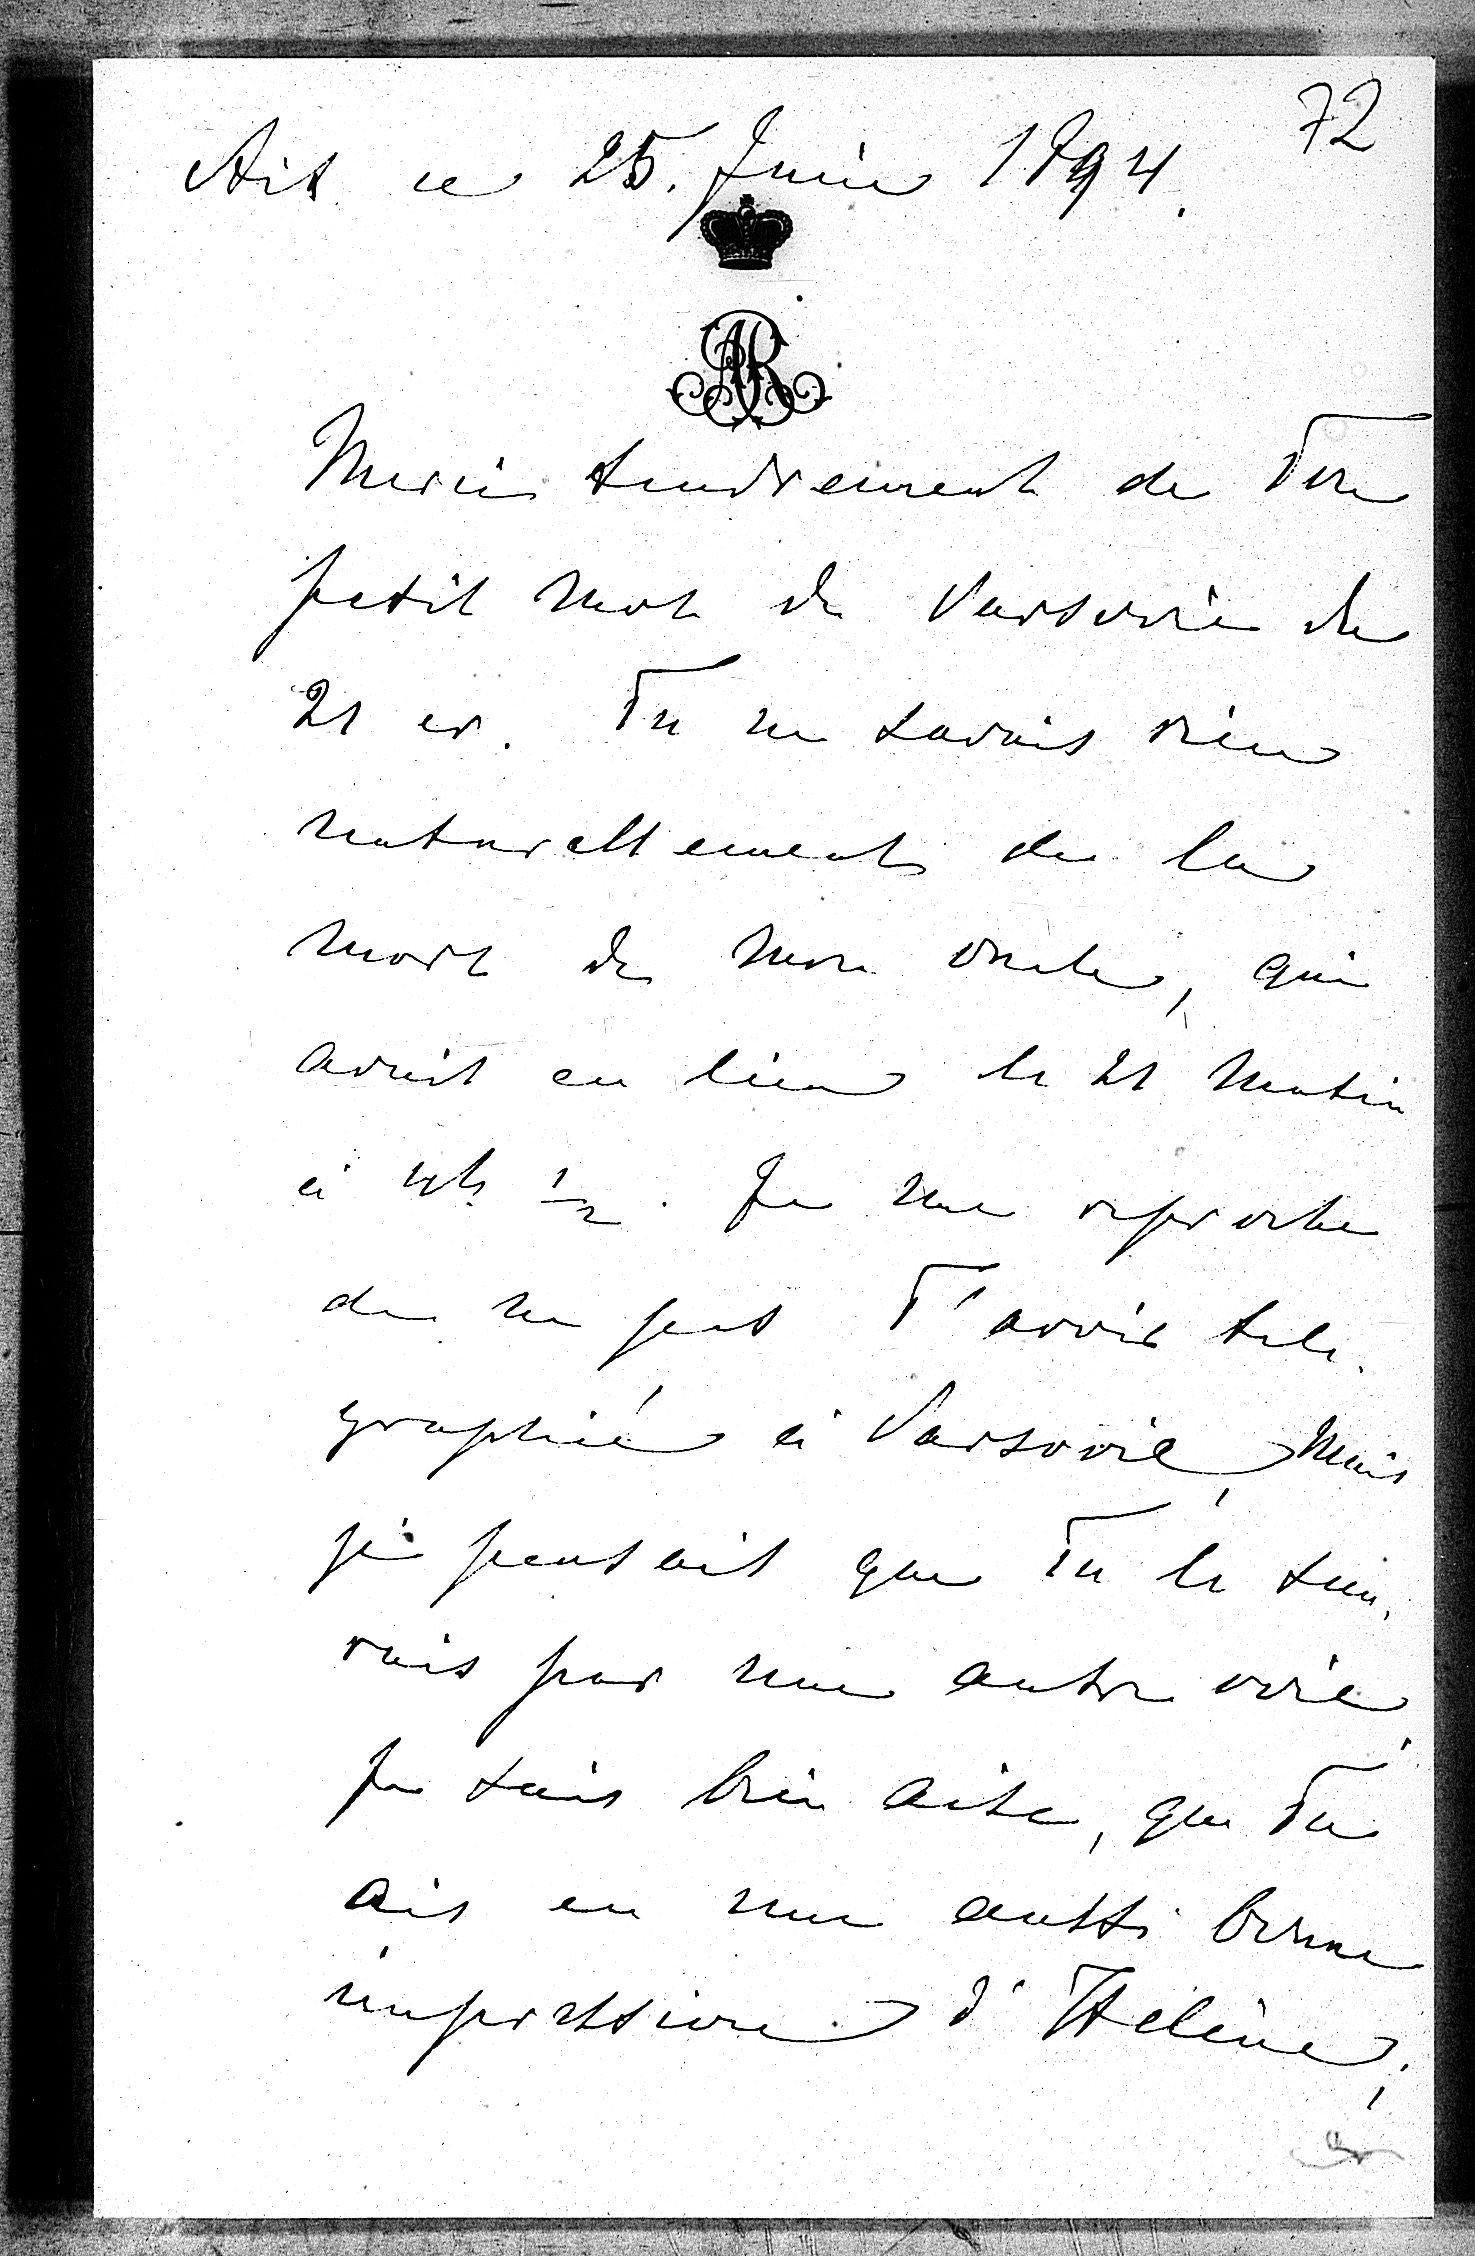 72
ce 25. Juin 1894.
AR
Merci tendrement de Ton
petit mot de Varsovie du
21 cr. Tu ne savais rien
naturellement de la
mort de mon oncle, qui
avait eu lieu le 21 matin
à 4h ½. Je me reproche
de ne pas T'avoir tele-
graphié à Varsovie, mais
je pensais que Tu le sau-
rais par une autre voie.
Je suis bien aise, que Tu
ais eu une aussi bonne
impression d'Hélène;